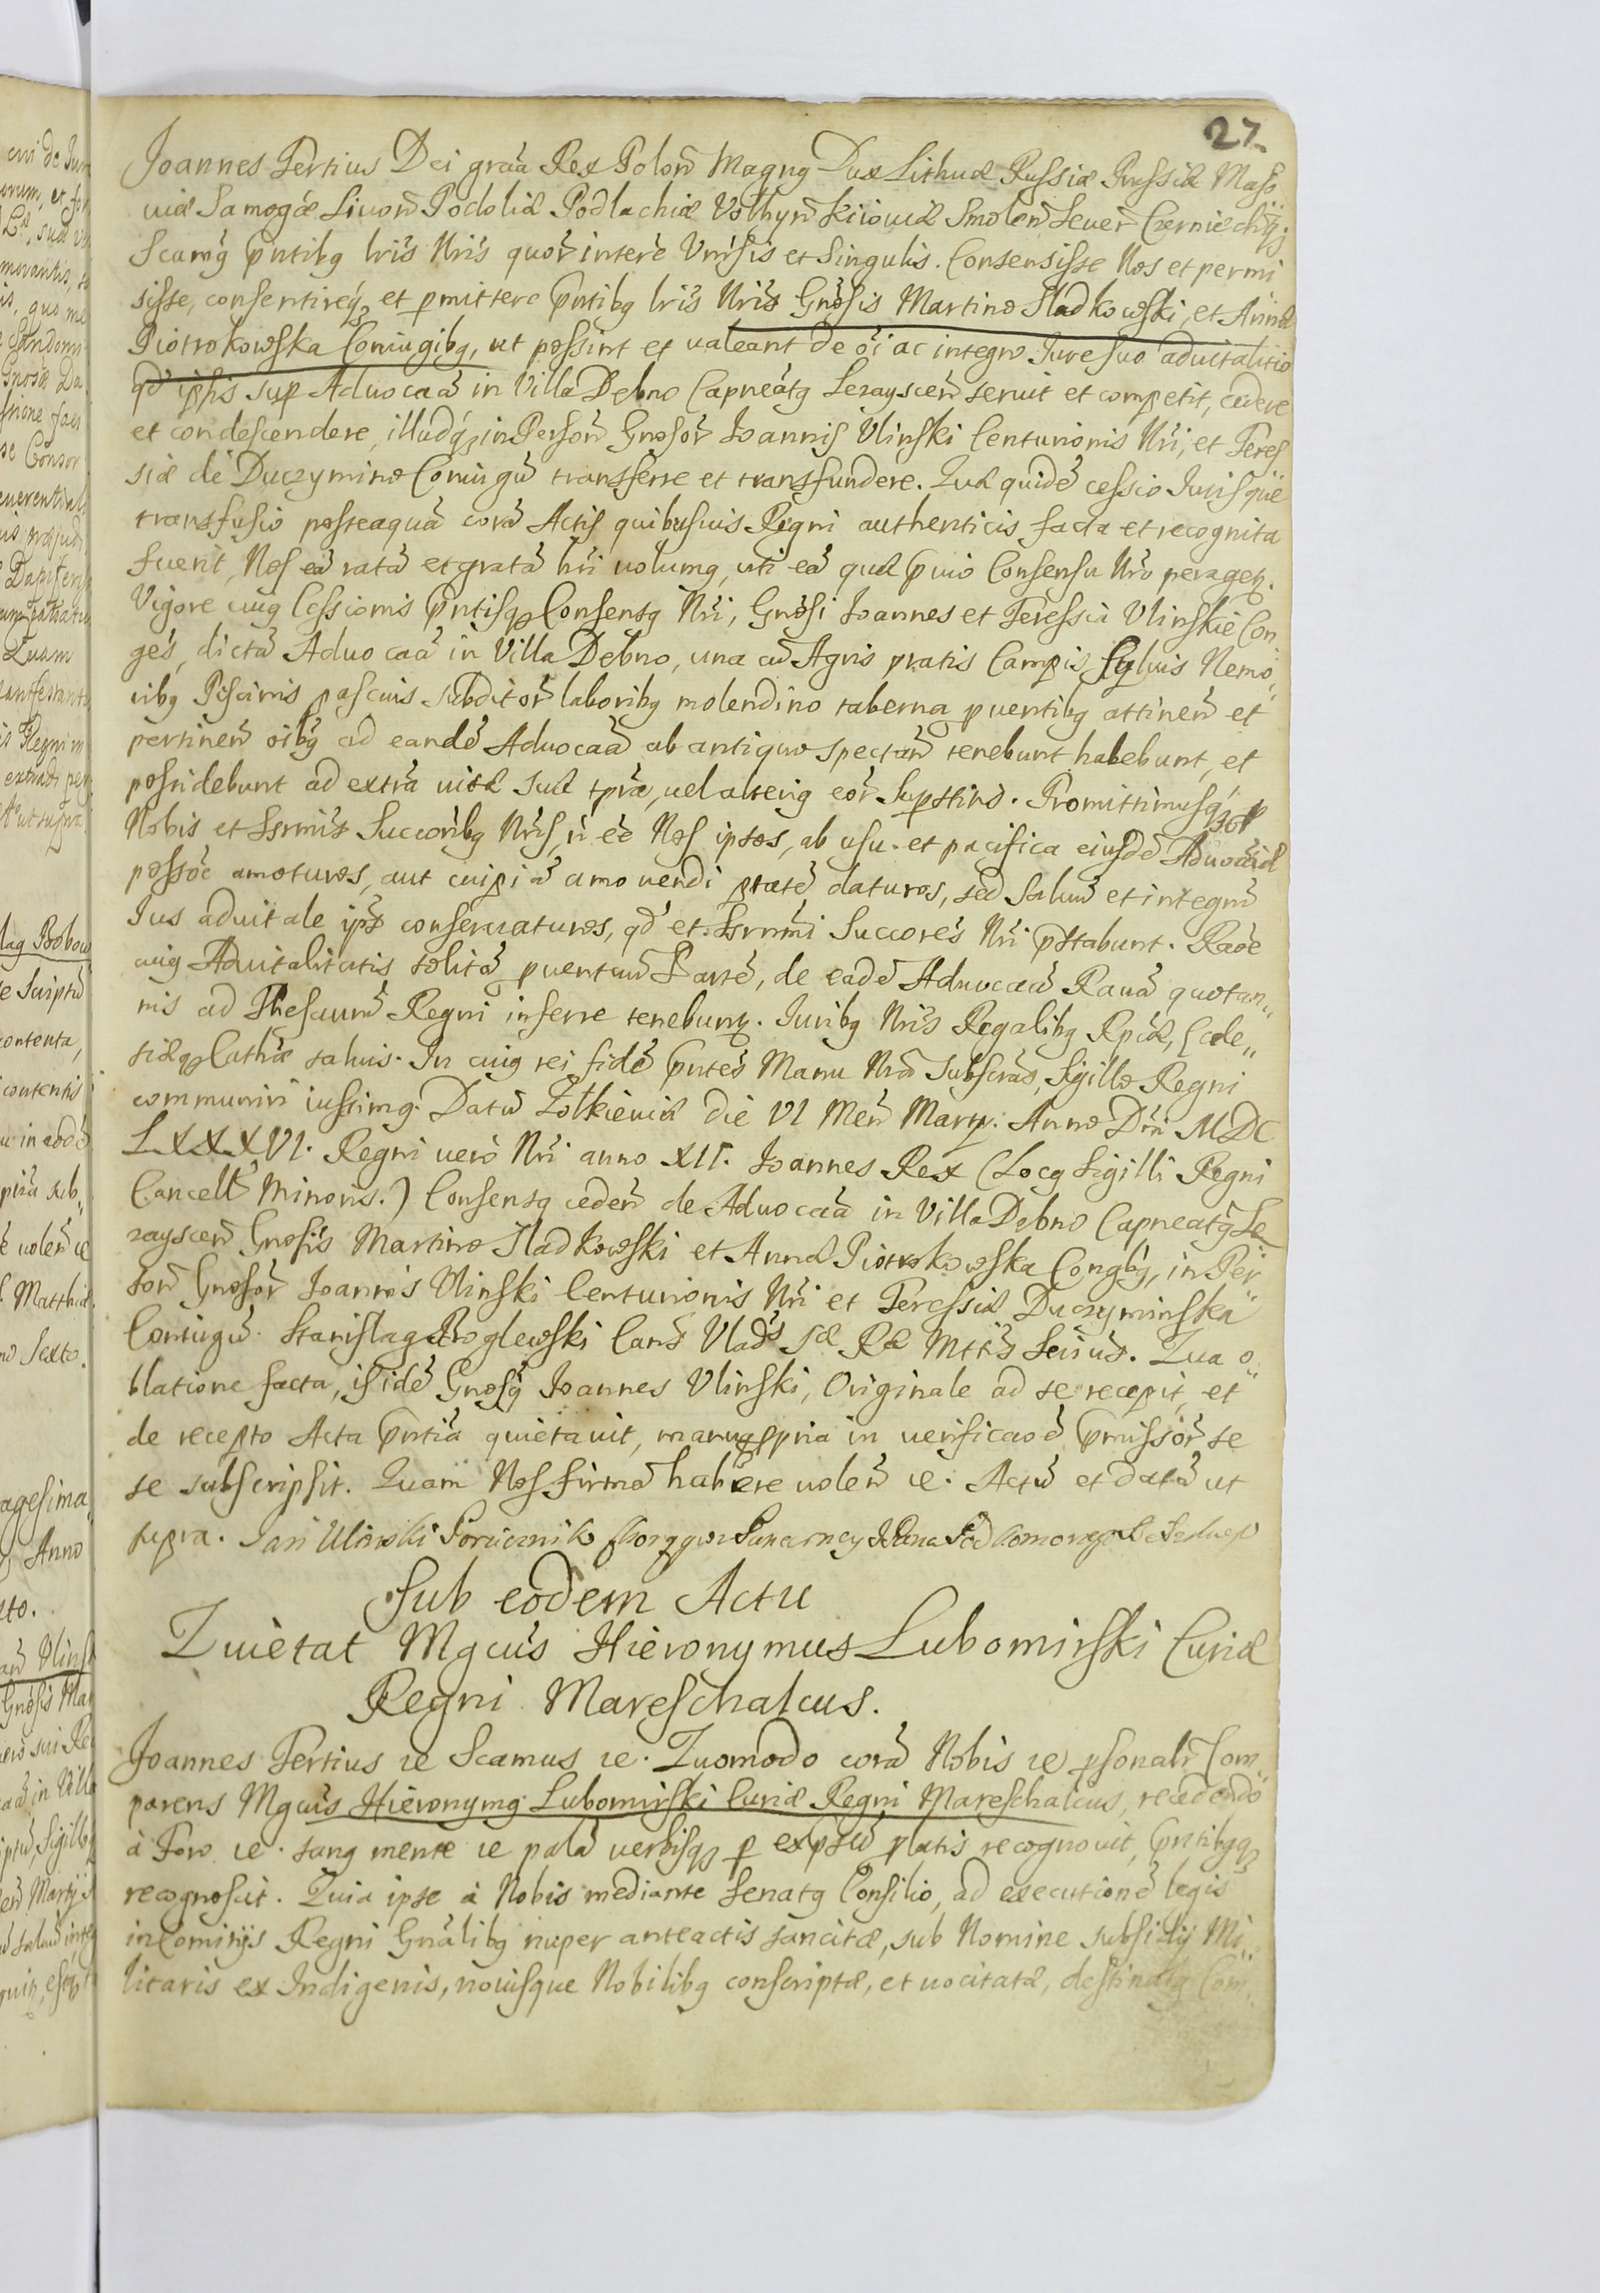 27
Joannes Tertius Dei graã Rex Polon̄ Magng Dux Lithuæ Russiæ Prussiæ Maso
uiæ Samogæ Liuon̄ Podoliæ Podlachiæ Volhyn̄ Kiiouiæ Smolen̄ Seuer̄ Czerniechqȝ
Scamg pntibg lrĩs Nrĩs quor̃ interẽ Vnrsis et Singulis. Consensisse Nos et permi
sisse, consentireqȝ et pmittere pntibg lrĩs Nrĩs Gnõsis Martino Sladkowski, et Annæ
Piotrokowska Coniugibg, ut possint et ualeant de oĩ ac integro Iure suo aduitalitio
qd ipsis sup Aduocaã in Villa Debno Capneatg Lezayscen̄ seruit et competit, cedere
et condescendere, illudqȝ in Person̄ Gnosor̃ Joannis Vlinski Centurionis Nri, et Teres
siæ de Duczymino Coniugũ transferre et transfundere. Quæ quidẽ cessio Iurisque
transfusio posteaquã corã Actis quibusuis Regni authenticis facta et recognita
fuerit, Nos eã ratã et gratã hri uolumg, uti eã quæ puio Consensu Nro peraget.
Vigore cuig Cessionis pntisqȝ Consensg Nri, Gnosi Joannes et Teressia Vlinskie Con
ges, dictã Aduocaã in Villa Debno, una cũ Agris pratis Campis Syluis Nemo
ribg Piscinis pascuis subditor̃ laboribg molendino taberna puentibg attinen̄ et
pertinen̄ oĩbg ad eandẽ Aduocaã ab antiquo spectan̄ tenebunt habebunt, et
possidebunt ad extrã uitæ suæ tpra, uel alterig eor̃ Supstitis. Promittimusqȝ p
Nobis et Ssrmis Succoribg Nris, n̄ eẽ Nos ipsos, ab usu et pacifica eiusdẽ Aduocaã
possõe amoturos, aut cuipiã amouendi ptatẽ daturos, sed Saluũ et integrũ
Ius aduitale ips conseruaturos, qd et Ssrnmi Succorẽs Nri pstabunt. Raõe
cuig Aduitalitatis solitã puentuũ Partẽ, de eadẽ Aduocaã Rauã quotan„
nis ad Thesaurũ Regni inferre tenebunt. Iuribg Nrĩs Regalibg Rpcæ, Eccle„
siæqȝ Cathæ saluis. In cuig rei fidẽ pntes Manu Nrã Subscras, Sigillo Regni
communiri iussimg. Datũ Zolkieuiæ die VI Men̄ Martij. Anno Dni MDC
LXXXVI. Regni uerò Nri anno XII. Joannes Rex (Locg Sigilli Regni
Cancell Minoris.) Consensg ceden̄ de Aduocaã in Villa Debno Capneatg Le
zayscen̄ Gnosis Martino Sladkowski et Annæ Piotrokowska Congbg, in Per
son̄ Gnosor̃ Joannis Vlinski Centurionis Nri et Teressiæ Duczyminska
Coniugũ. Stanislag Roglewski Canõ Vlads Sæ Ræ Mttis Secrius. Qua o„
blatione facta, isidẽ Gnosg Joannes Vlinski, Originale ad se recepit, et
de recepto Acta pntiã quietauit, manuqȝ ppria in uerificaoẽ pmissor̃ se
se subscripsit. Quam Nos firmã habere uolen̄ ic. Actũ et datũ ut
supra. Jan Ulinski Porucznik
Sub eodem Actu
Quietat Mgcus Hieronymus Lubomirski Curiæ
Regni Mareschalcus.
Joannes Tertius ic Scamus ic. Quomodo corã Nobis ic psonalr̃ Com
parens Mgcus Hieronymg Lubomirski Curiæ Regni Mareschalcus, recedendo
à Foro ic. sang mente ic palã uerbisqȝ p expssũ platis recognouit, pntibgqȝ
recognoscit. Quia ipse à Nobis mediante Senatg Consilio, ad executionẽ legis
in Comitijs Regni Gnãlibg nuper anteactis sancitæ, sub Nomine subsidij Mi„
litaris ex Indigenis, nouisque Nobilibg conscriptæ, et uocitatæ, destinatg Com